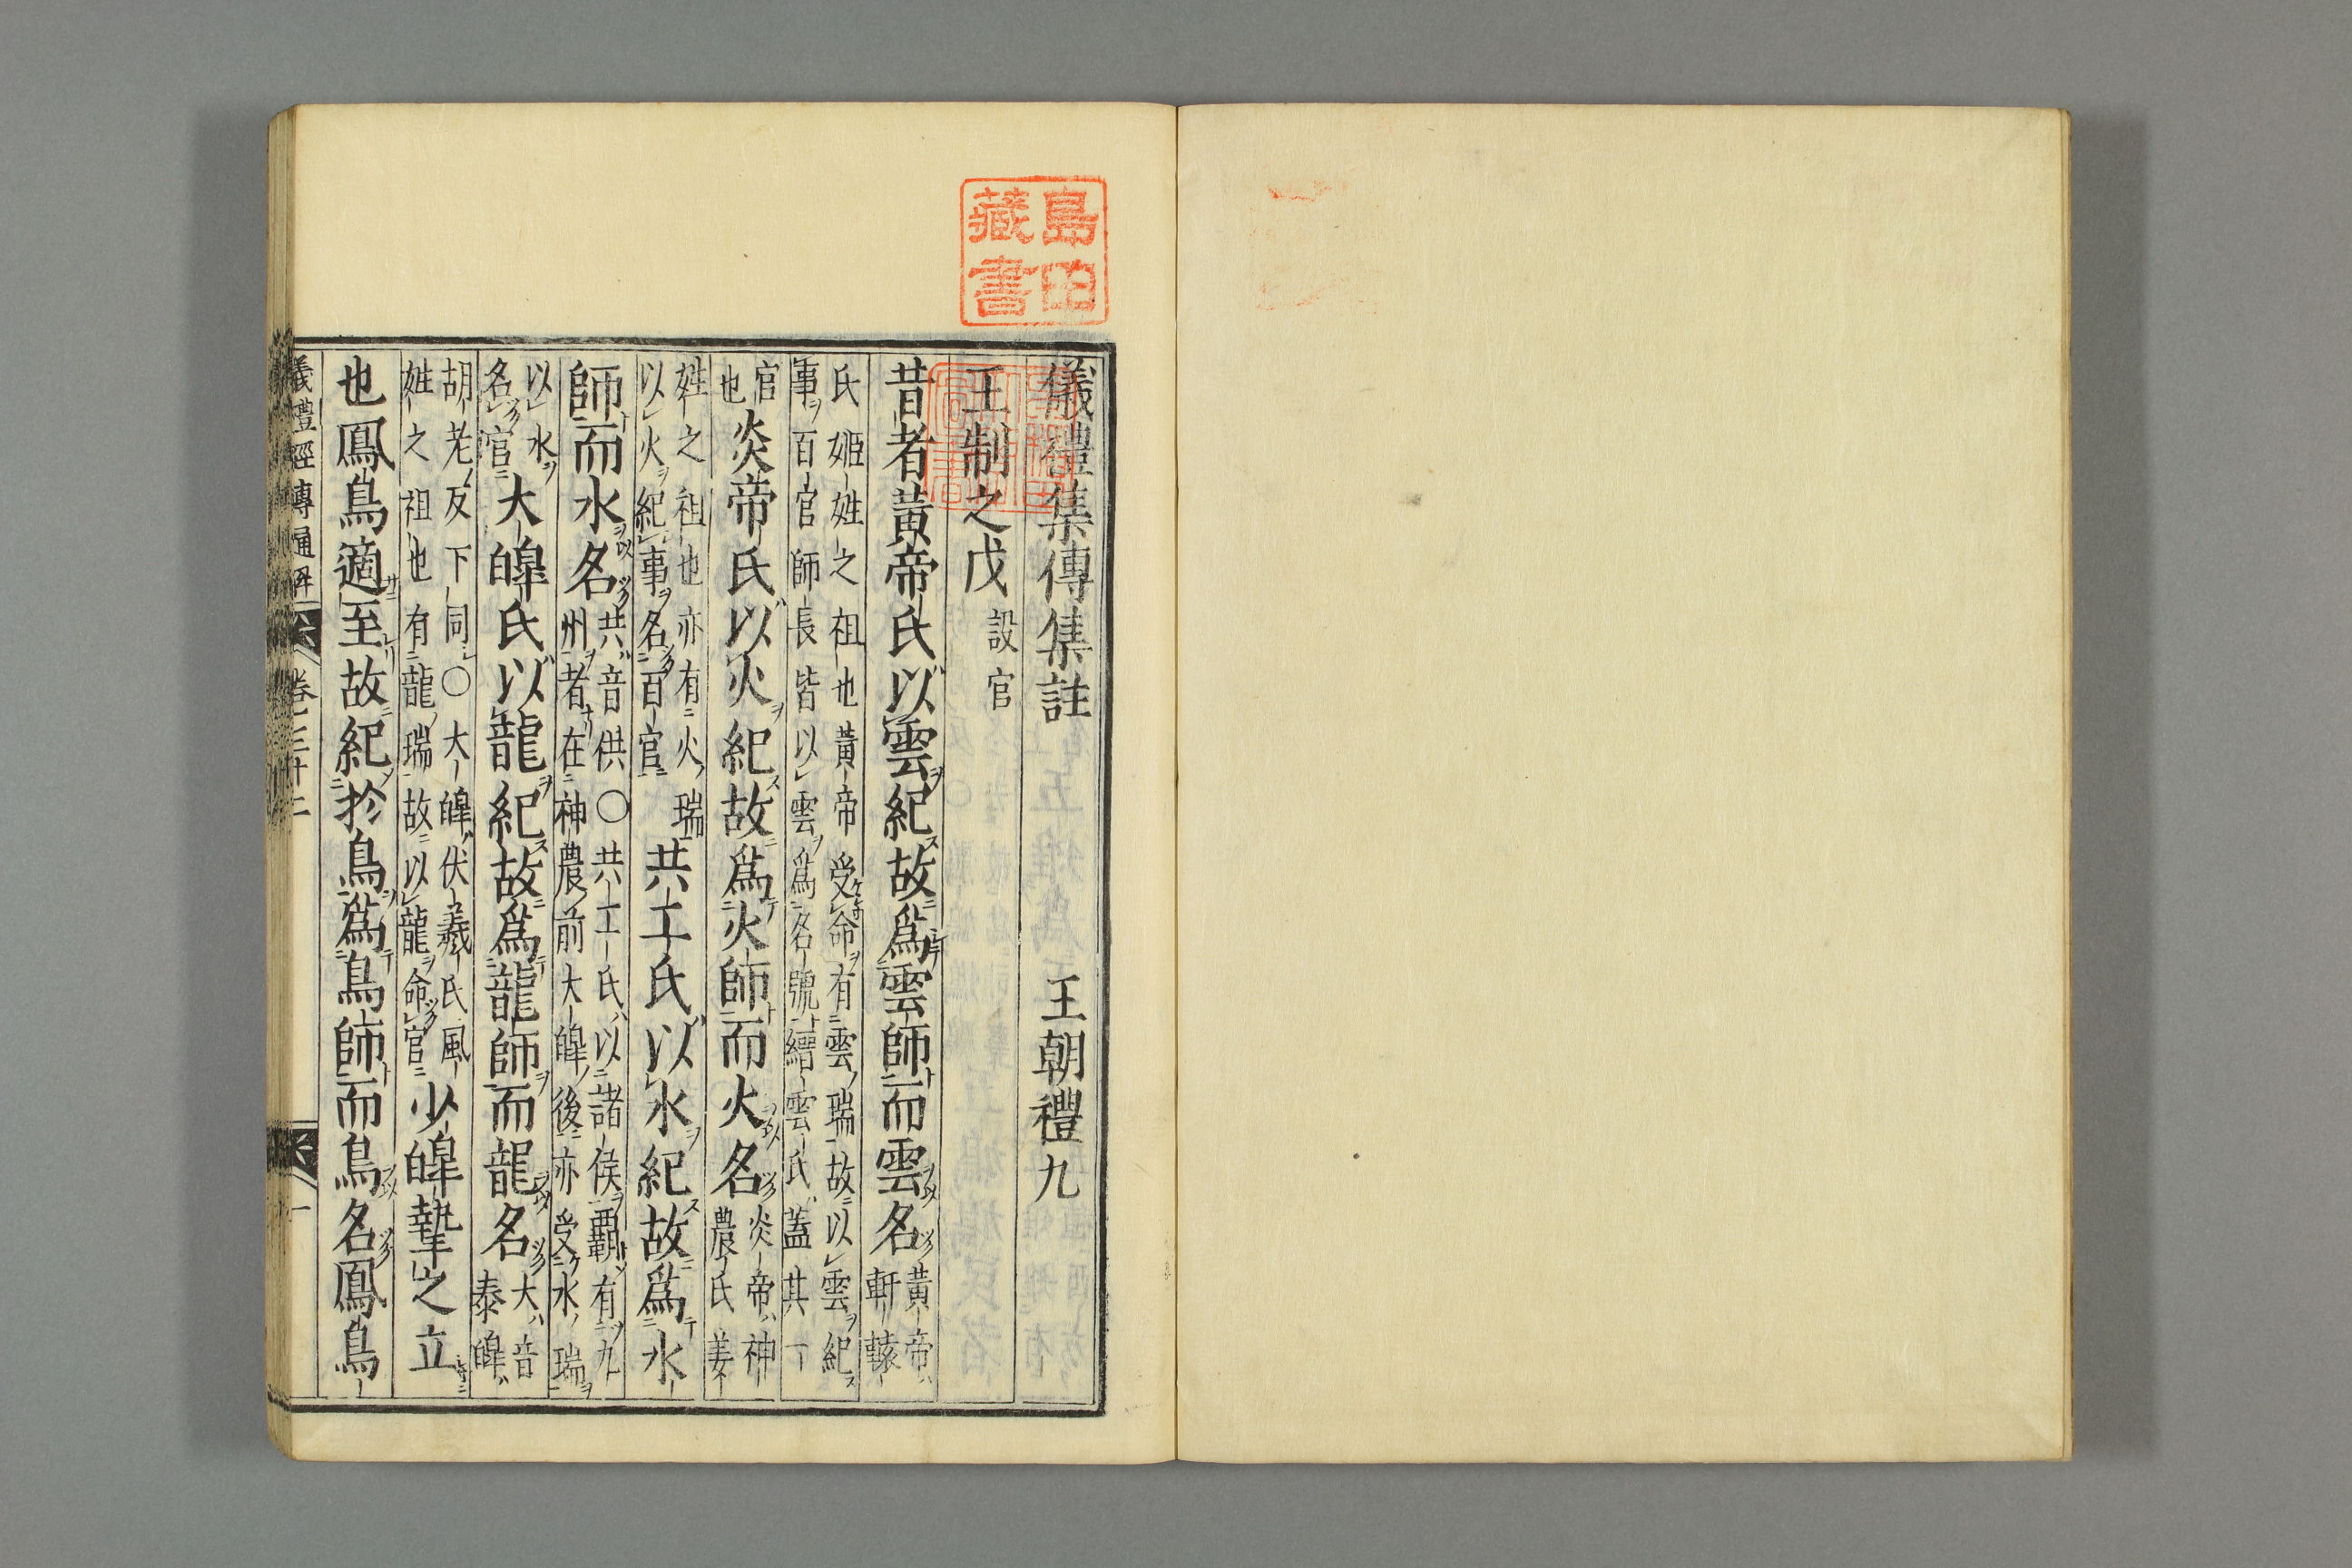 島田
藏書
儀禮集傳集註　王朝禮九
王制之戊 設官
昔者黃帝氏以雲紀故爲雲師而雲名 黃帝軒轅
氏姬姓之祖也黃帝受命有雲瑞故以雲紀
事百官師長皆以雲爲名號縉雲氏蓋其一
官也 炎帝氏以火紀故爲火師而火名 炎帝神農氏姜
姓之祖也亦有火瑞
以火紀事名百官 共工氏以水紀故爲水
師而水名 共音供○共工氏以諸侯霸有九
州者在神農前大皞後亦受水瑞
以水名官 大皞氏以龍紀故爲龍師而龍名 大音泰皞
胡老反下同○大皞伏羲氏風
姓之祖也有龍瑞故以龍命官 少皞摯之立
也鳳鳥適至故紀於鳥爲鳥師而鳥名鳳鳥
儀禮經傳通解　卷三十二　一